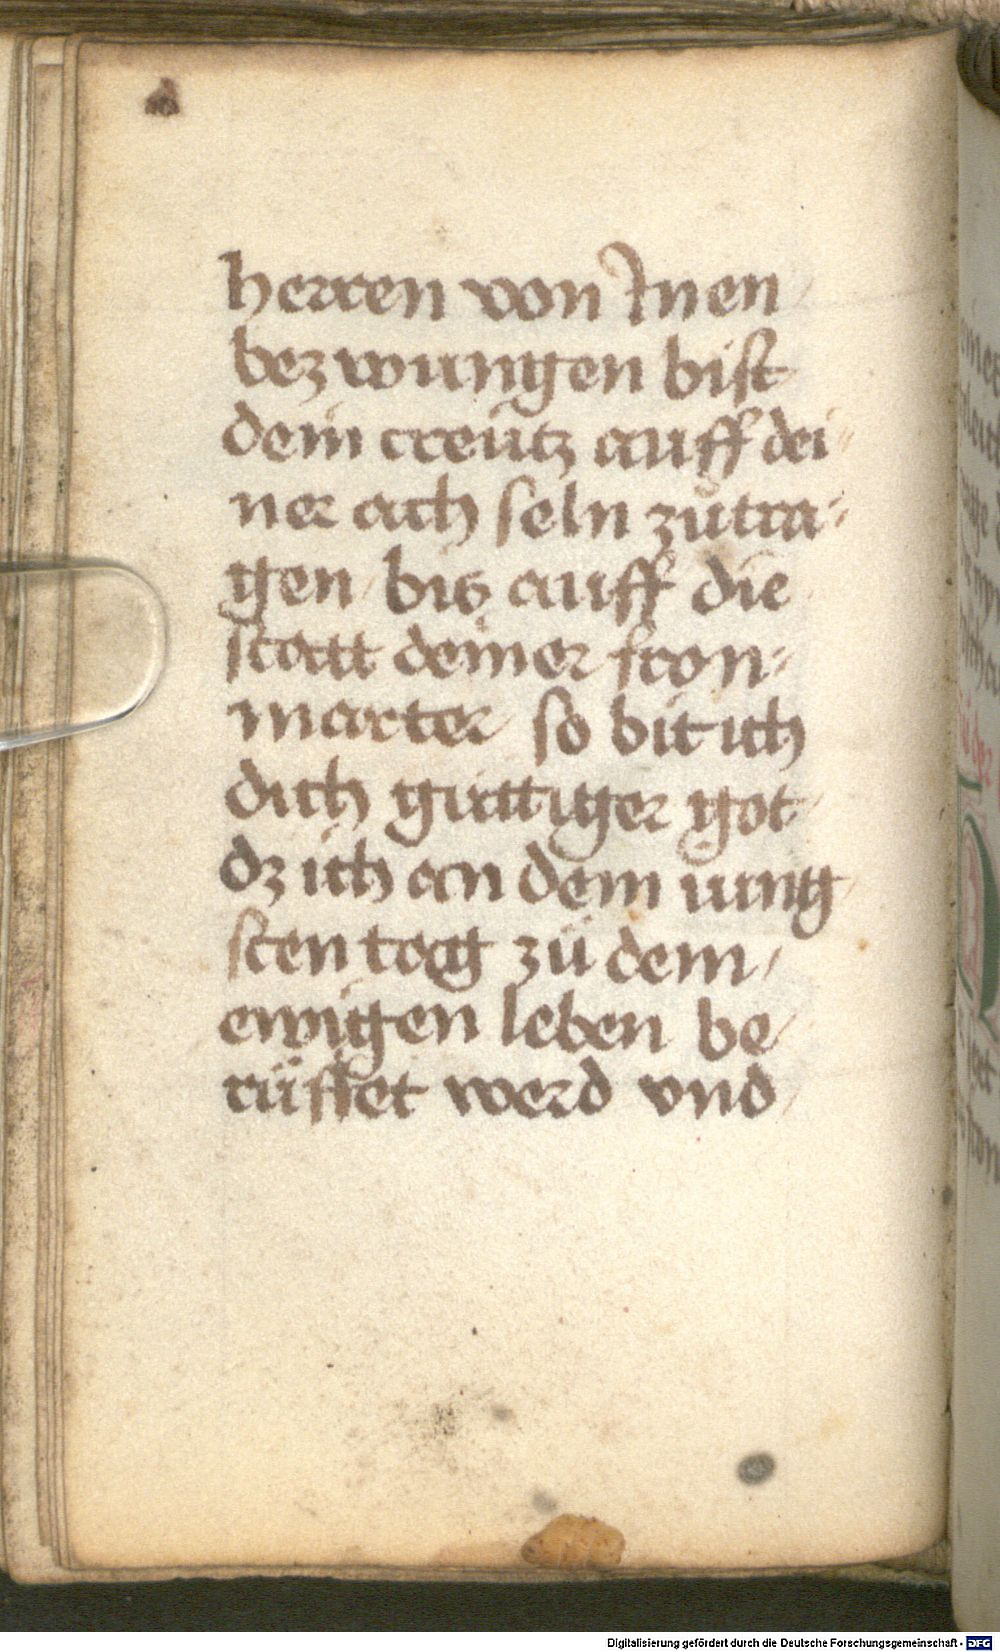 herren von Jnen
bezwungen bist
dein creütz auff dei⸗
ner ach seln zůtra⸗
gen bis auff die
statt deiner fron⸗
marter so bit ich
dich guttiger got
dz ich an dem iung
sten tag zů dem
ewigen leben be
rüffet werd vnd
Digitalisierung gefördert durch die Deutsche Forschungsgemeinschaft - DFG